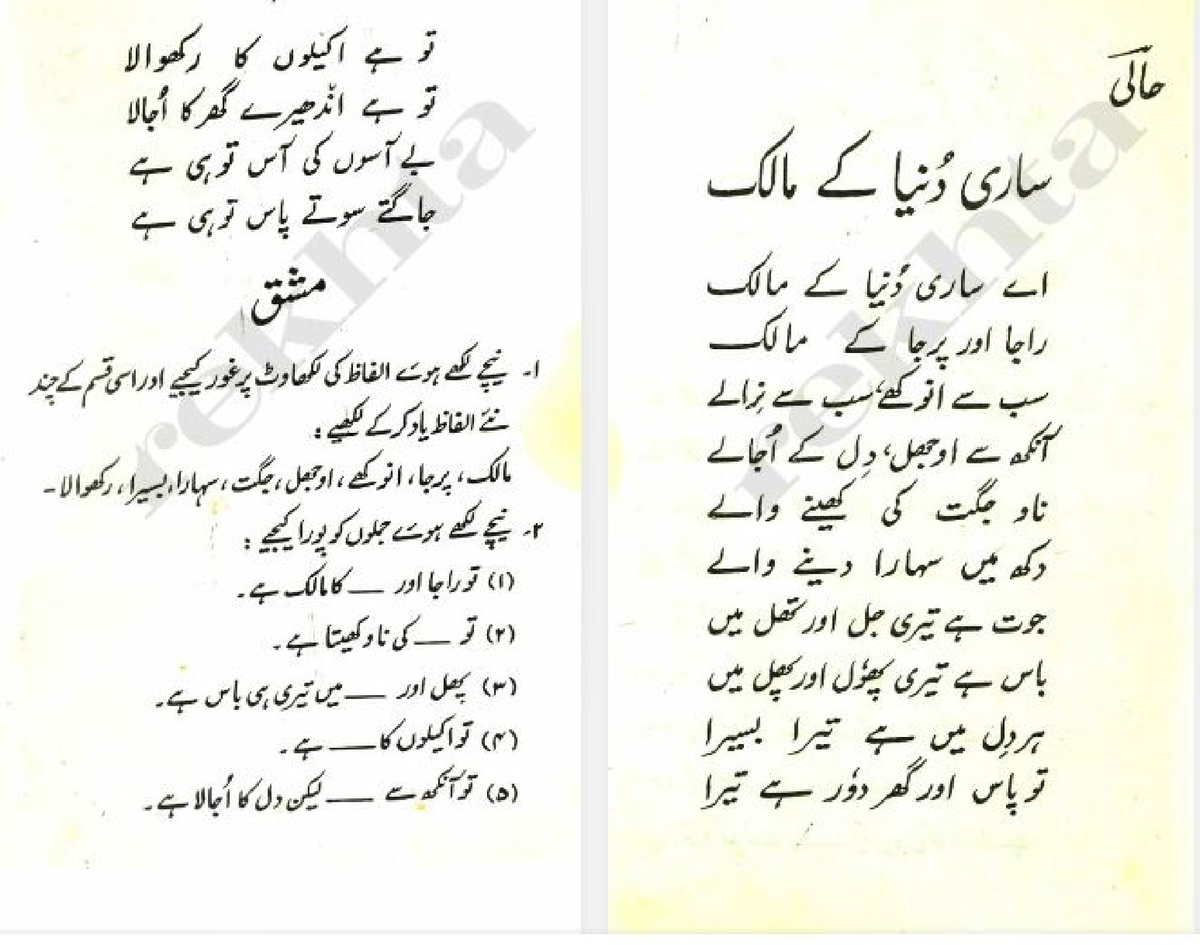 حالی
ساری دُنیا کے مالک
اے ساری دُنیا کے مالک
راجا اور پرجا کے مالک
سب سے انوکھے، سب سے نِرالے
آنکھ سے اوجھل، دِل کے اُجالے
ناو جگت کی کھینے والے
دکھ میں سہارا دینے والے
جوت ہے تیری جل اور تھل میں
باس ہے تیری پھوٗل اور پھل میں
ہر دِل میں ہے تیرا بسیرا
تو پاس اور گھر دوٗر ہے تیرا
تو ہے اکیلوں کا رکھوالا
تو ہے اندھیرے گھر کا اُجالا
بے آسوں کی آس تو ہی ہے
جاگتے سوتے پاس تو ہی ہے
مشق
۱۔ نیچے لکھے ہوئے الفاظ کی لکھاوٹ پر غور کیجیے اور اسی قسم کے چند
نئے الفاظ یاد کر کے لکھیے :
مالک، پرجا، انوکھے، اوجھل، جگت، سہارا، بسیرا، رکھوالا۔
۲۔ نیچے لکھے ہوئے جملوں کو پورا کیجیے :
(۱) تو راجا اور ـــــ کا مالک ہے۔
(۲) تو ـــــ کی ناو کھیتا ہے۔
(۳) پھل اور ـــــ میں تیری ہی باس ہے۔
(۴) تو اکیلوں کا ـــــ ہے۔
(۵) تو آنکھ سے ـــــ لیکن دل کا اُجالا ہے۔
rekhta
rekhta